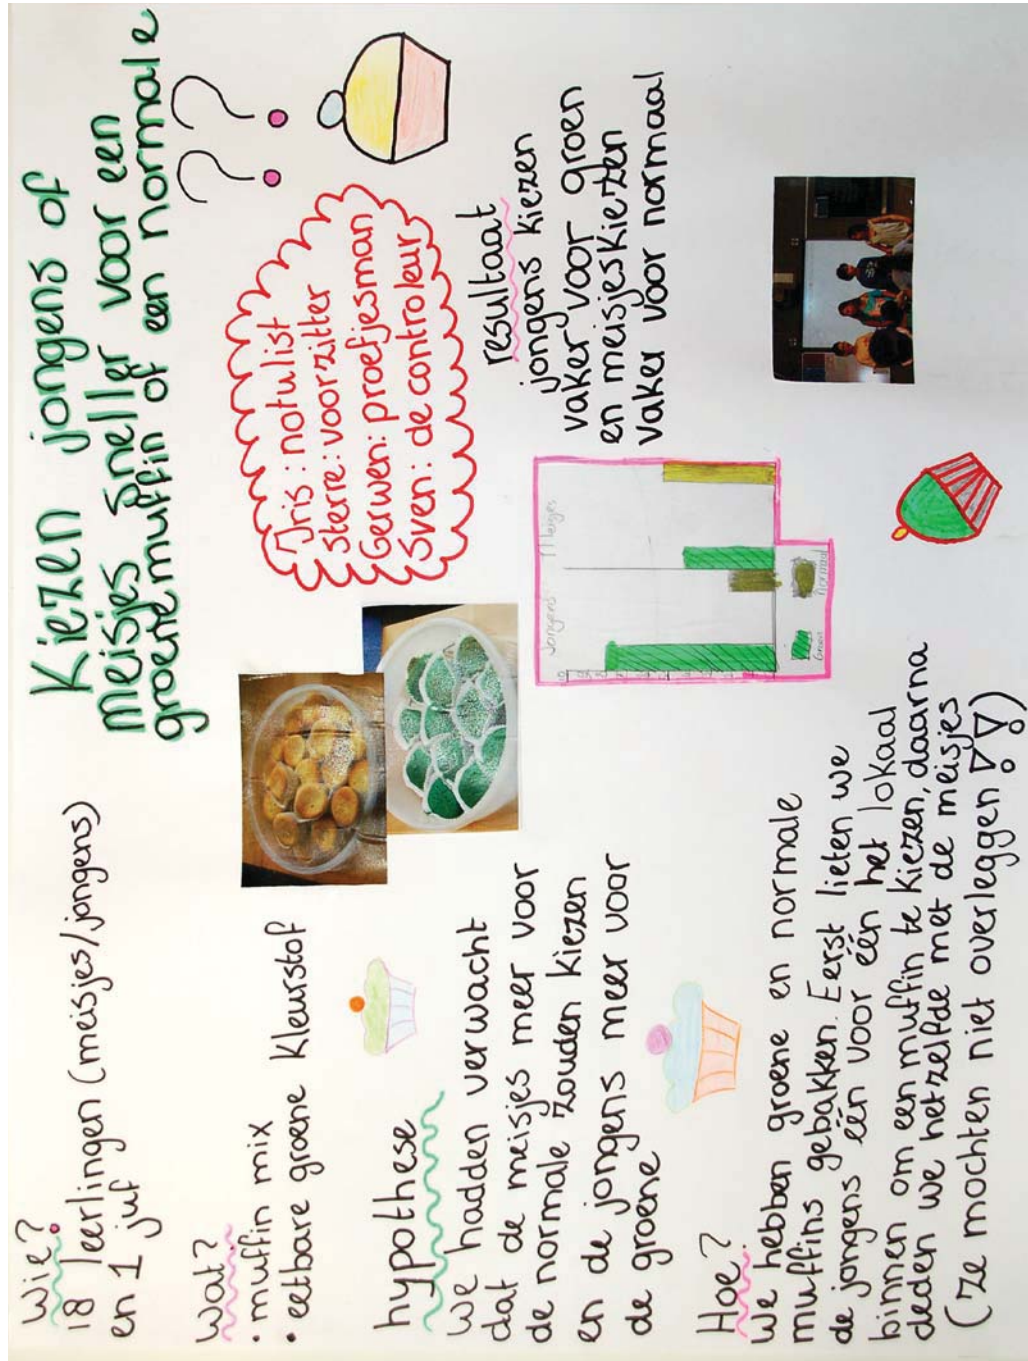 Kiezen jongens of
meisjes sneller voor een
groene muffin of een normale
??
Wie?
18 leerlingen (meisjes/jongens)
en 1 juf
Wat?
• muffin mix
• eetbare groene kleurstof
hypothese
We hadden verwacht
dat de meisjes meer voor
de normale zouden kiezen
en de jongens meer voor
de groene
Hoe?
We hebben groene en normale
muffins gebakken. Eerst lieten we
de jongens één voor één het lokaal
binnen om een muffin te kiezen, daarna
deden we hetzelfde met de meisjes
(ze mochten niet overleggen!!)
Iris: notulist
Sterre: voorzitter
Gerwen: proefjesman
Sven: de controleur
Jongens
Meisjes
Groen
Normaal
resultaat
jongens kiezen
vaker voor groen
en meisjes kiezen
vaker voor normaal